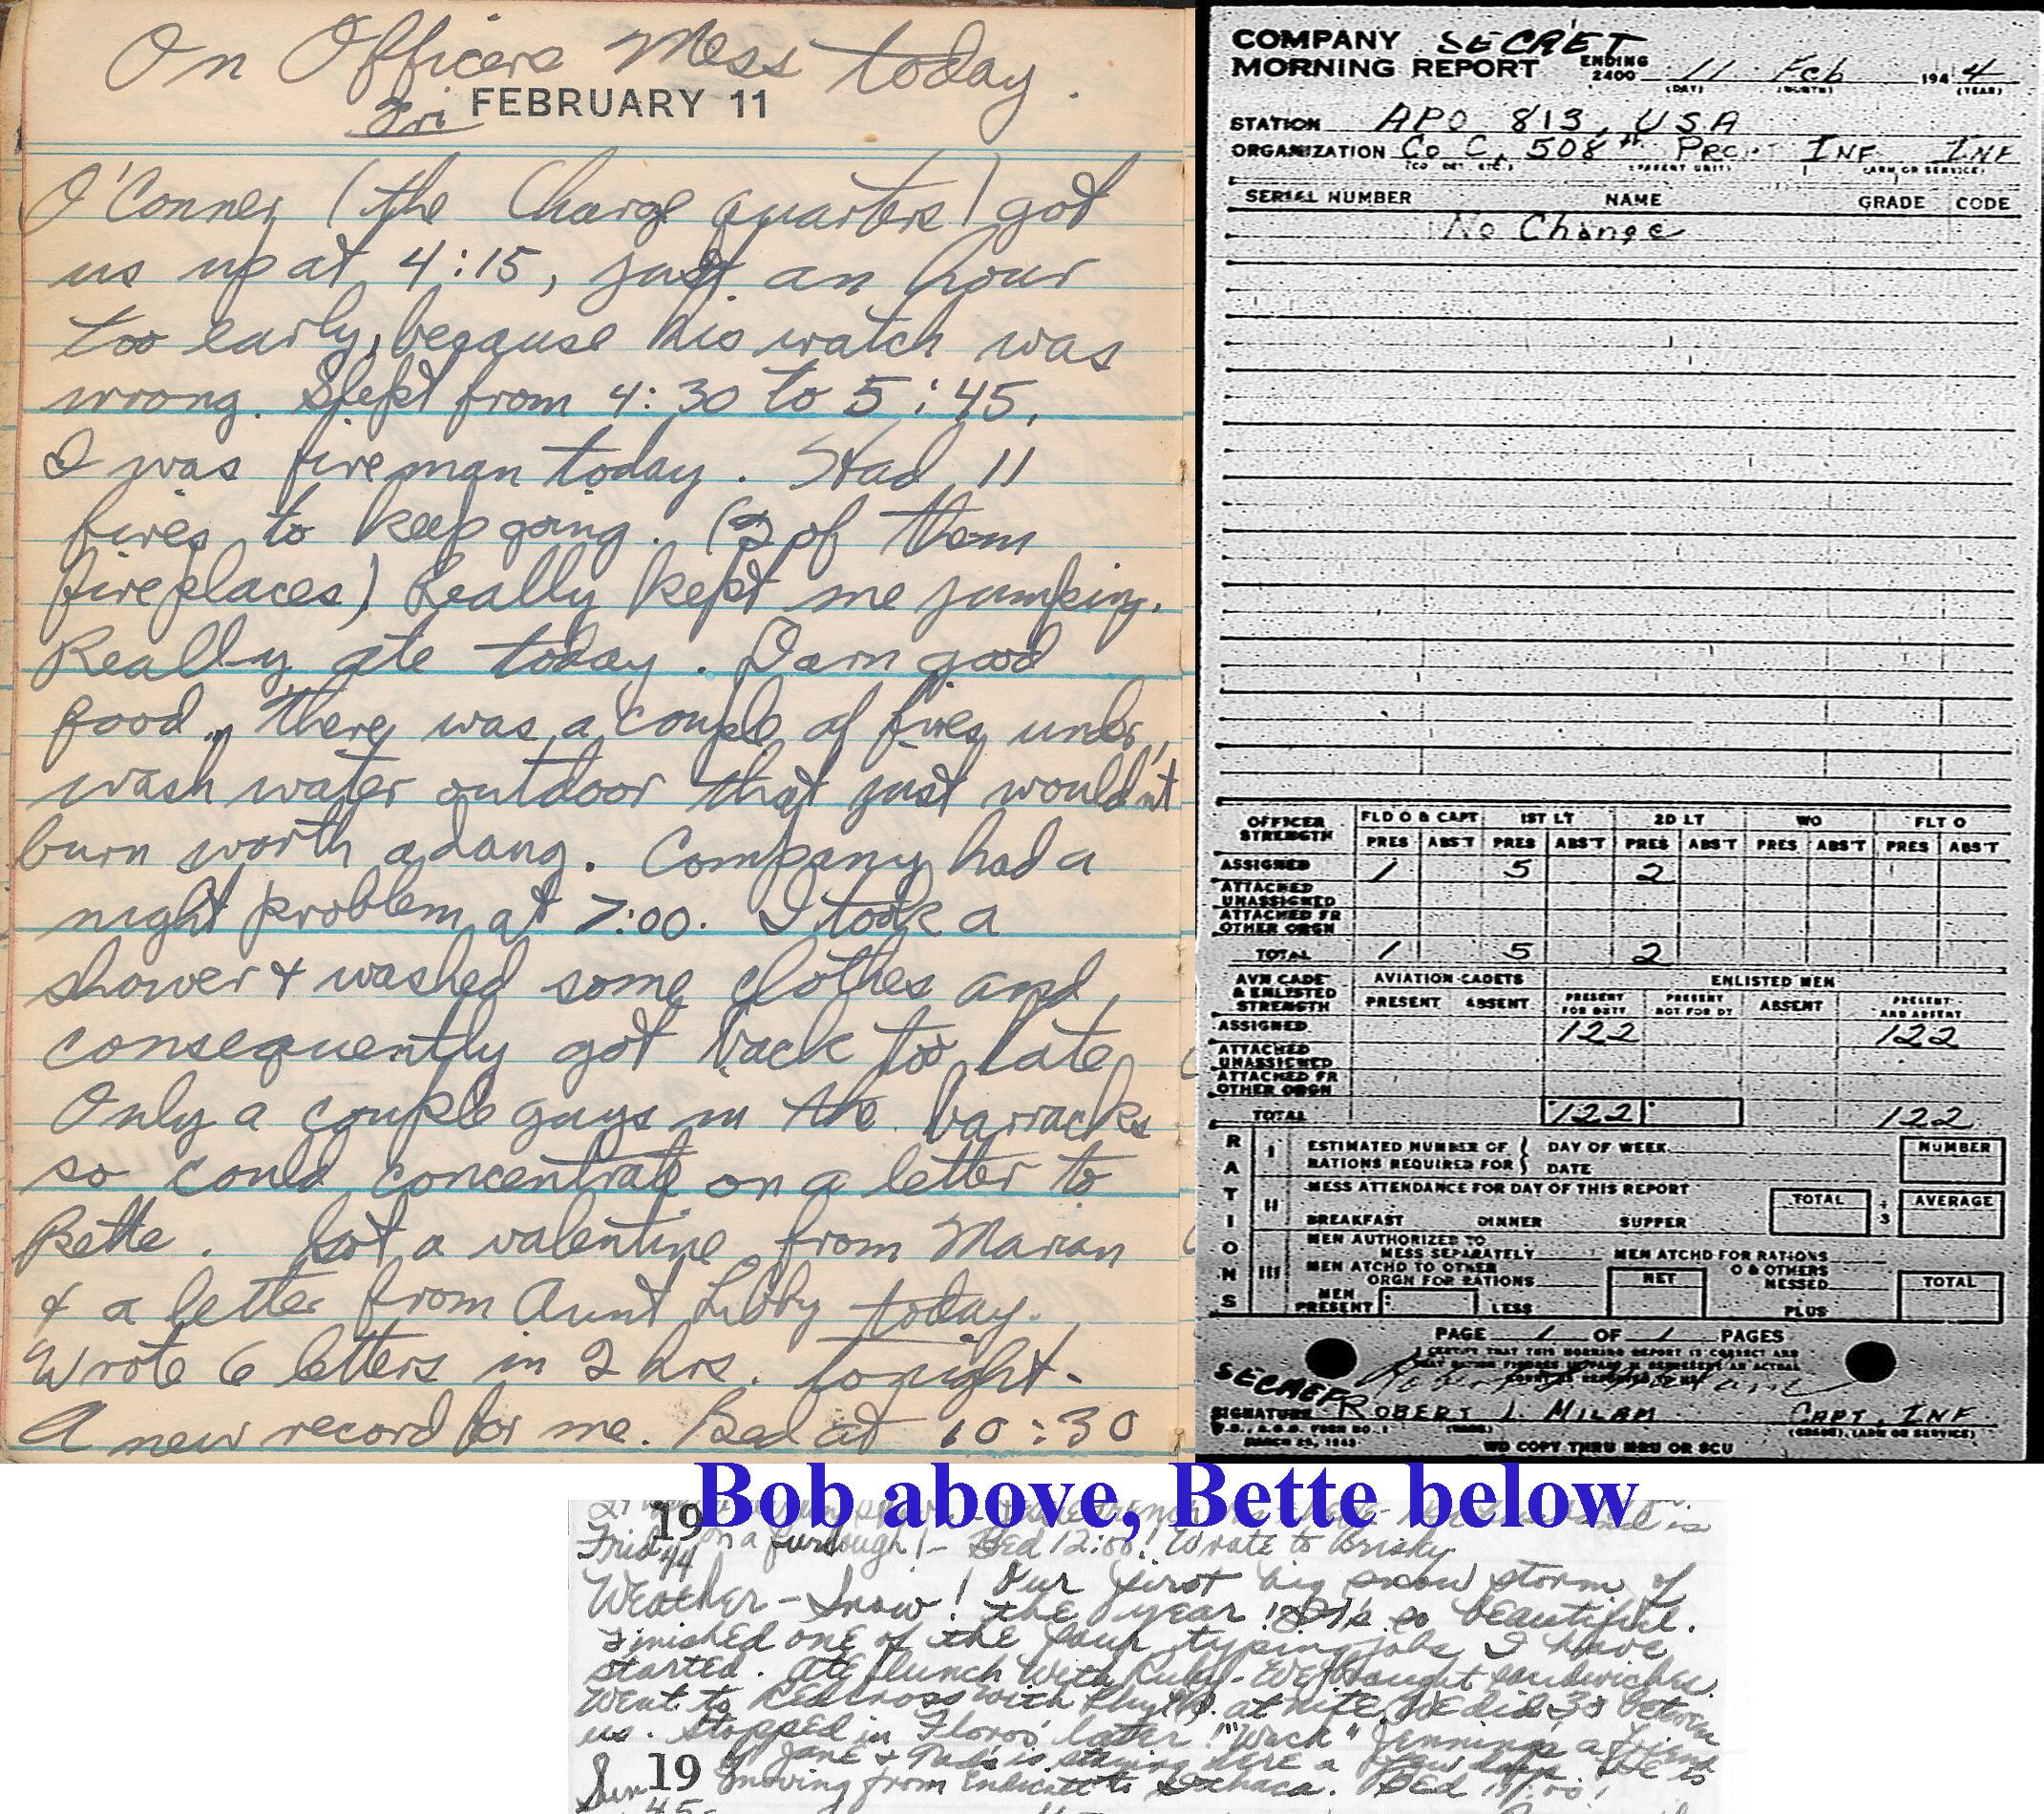 On Officers Mess today.
Fri FEBRUARY 11
O'Conner (the Charge quarters) got
us up at 4:15, just an hour
too early, because his watch was
wrong. Slept from 4:30 to 5:45.
I was fireman today. Had 11
fires to keep going. (2 of them
fireplaces) Really kept me jumping.
Really ate today. Darn good
food. There was a couple of fires under
wash water outdoor that just wouldn't
burn worth a dang. Company had a
night problem at 7:00. I took a
shower & washed some clothes and
consequently got back too late
Only a couple guys in the barracks
so could concentrate on a letter to
Bette. Got a valentine from Marian
& a letter from Aunt Libby today.
Wrote 6 letters in 2 hrs. tonight-
A new record for me. Bed at 10:30
COMPANY SECRET
MORNING REPORT ENDING 2400 11 Feb 1944
(DAY) (MONTH) (YEAR)
STATION APO 813, USA
ORGANIZATION Co C, 508th Prcht Inf Inf
(CO DET ETC.) (PARENT UNIT) (ARM OR SERVICE)
SERIAL NUMBER NAME GRADE CODE
No Change
OFFICER STRENGTH FLD O & CAPT 1ST LT 2D LT WO FLT O
PRES ABS'T PRES ABS'T PRES ABS'T PRES ABS'T PRES ABS'T
ASSIGNED 1 5 2
ATTACHED UNASSIGNED
ATTACHED FR OTHER ORGN
TOTAL 1 5 2
AVN CADE & ENLISTED STRENGTH AVIATION CADETS ENLISTED MEN
PRESENT ABSENT PRESENT FOR DUTY PRESENT NOT FOR DY ABSENT PRESENT AND ABSENT
ASSIGNED 122 122
ATTACHED UNASSIGNED
ATTACHED FR OTHER ORGN
TOTAL 122 122
RATIONS
I ESTIMATED NUMBER OF RATIONS REQUIRED FOR DAY OF WEEK DATE NUMBER
II MESS ATTENDANCE FOR DAY OF THIS REPORT TOTAL ÷ 3 AVERAGE
BREAKFAST DINNER SUPPER
III MEN AUTHORIZED TO MESS SEPARATELY MEN ATCHD FOR RATIONS
MEN ATCHD TO OTHER ORGN FOR RATIONS NET O & OTHERS MESSED TOTAL
MEN PRESENT LESS PLUS
PAGE 1 OF 1 PAGES
I CERTIFY THAT THIS MORNING REPORT IS CORRECT AND
SECRET
SIGNATURE ROBERT J. MILAM CAPT, INF
(NAME) (GRADE) (ARM OR SERVICE)
W.D., A.G.O. FORM NO. 1
MARCH 25, 1943
WD COPY THRU MRU OR SCU
Bob above, Bette below
19
Frid 44 on a furlough!- Bed 12:00! Wrote to Brisky
Weather - Snow! Our first big snow storm of
the year! It's so beautiful.
Finished one of the four typing jobs I have
started. Ate lunch with Ruby - We bought sandwiches.
Went to Red Cross with at nite. We did 33 between
us. Stopped in Floros' later! "Wack" Jennings, a friend
of Jane & is staying here a few days. She is
19 moving from Endicott to Ithaca. Bed
Sun 45